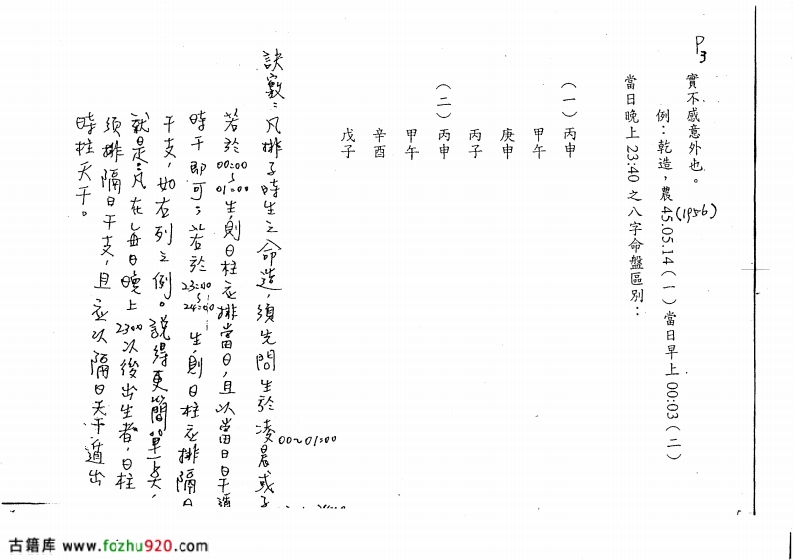 P3
實不感意外也。
例：乾造，農45.05.14（一）當日早上00:03（二）
(1956)
當日晚上23:40之八字命盤區別：
（一）丙申
甲午
庚申
丙子
（二）丙申
甲午
辛酉
戊子
訣竅：凡排子時生之命造，須先問生於凌晨或子
00~01:00
若於00:00~01:00生，則日柱應排當日，且以當日日干遁
時干即可；若於23:00~24:00生，則日柱應排隔日
干支，如右列之例。說得更簡單一點，
就是：凡在每日晚上23:00以後出生者，日柱
須排隔日干支，且應以隔日天干遁出
時柱天干。
古籍库 www.fozhu920.com